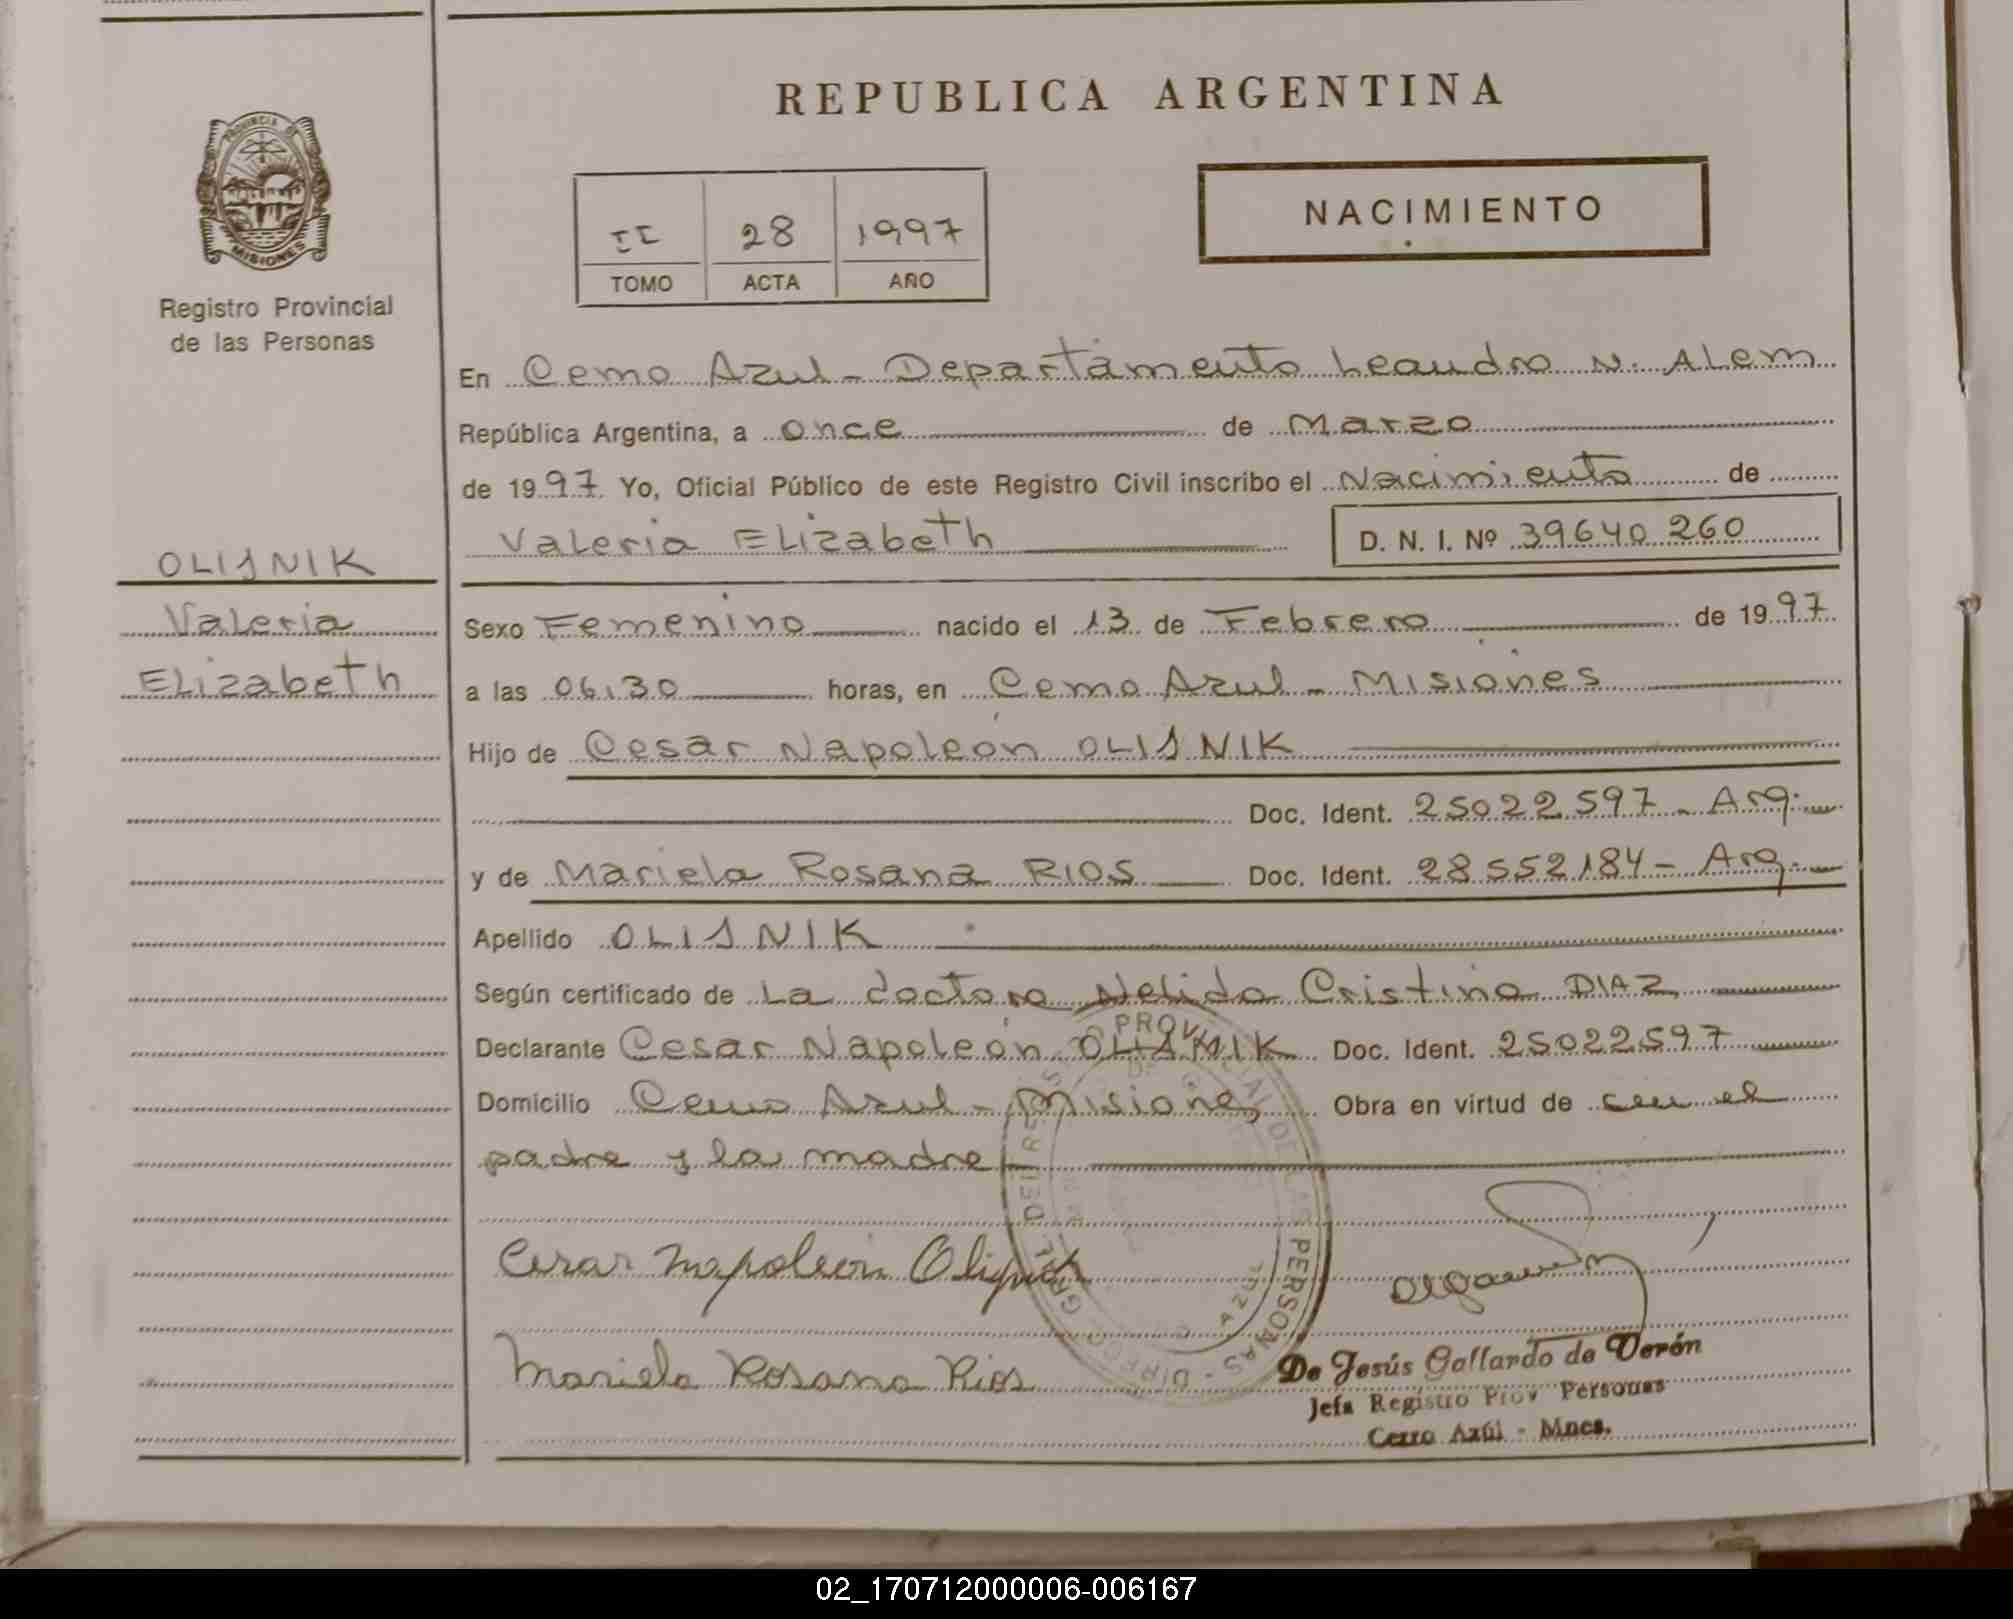 REPUBLICA ARGENTINA
PROVINCIA DE
MISIONES
Registro Provincial
de las Personas
II 28 1997
TOMO ACTA AÑO
NACIMIENTO
OLISNIK
Valeria
Elizabeth
En Cerro Azul - Departamento Leandro N. Alem
República Argentina, a once de Marzo
de 1997 Yo, Oficial Público de este Registro Civil inscribo el Nacimiento de
Valeria Elizabeth D. N. I. Nº 39640260
Sexo Femenino nacido el 13 de Febrero de 1997
a las 06,30 horas, en Cerro Azul - Misiones
Hijo de Cesar Napoleón OLISNIK
Doc. Ident. 25022597 - Arg.
y de Mariela Rosana RIOS Doc. Ident. 28552184 - Arg.
Apellido OLISNIK
Según certificado de La doctora Nelida Cristina DIAZ
Declarante Cesar Napoleón OLISNIK Doc. Ident. 25022597
Domicilio Cerro Azul - Misiones Obra en virtud de ser el
padre y la madre
Cesar Napoleón
Mariela Rosana Rios
De Jesús Gallardo de Verón
Jefa Registro Prov Personas
Cerro Azúl - Mnes.
02_170712000006-006167